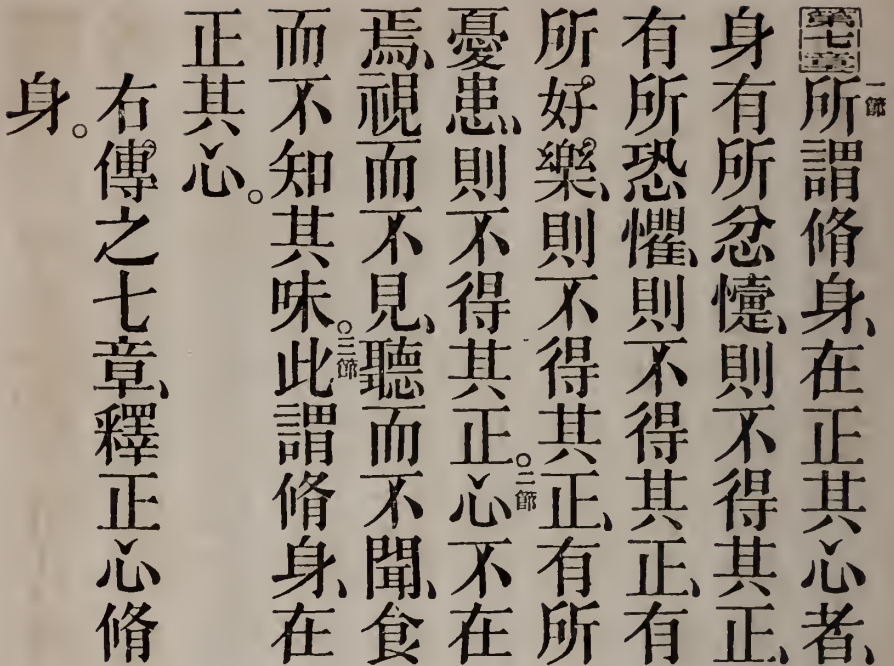 第七章 一節 所謂脩身、在正其心者、
身有所忿懥、則不得其正、
有所恐懼、則不得其正、有
所好樂、則不得其正、有所
憂患、則不得其正。二節 心不在
焉、視而不見、聽而不聞、食
而不知其味。三節 此謂脩身、在
正其心。
右傳之七章、釋正心脩
身。